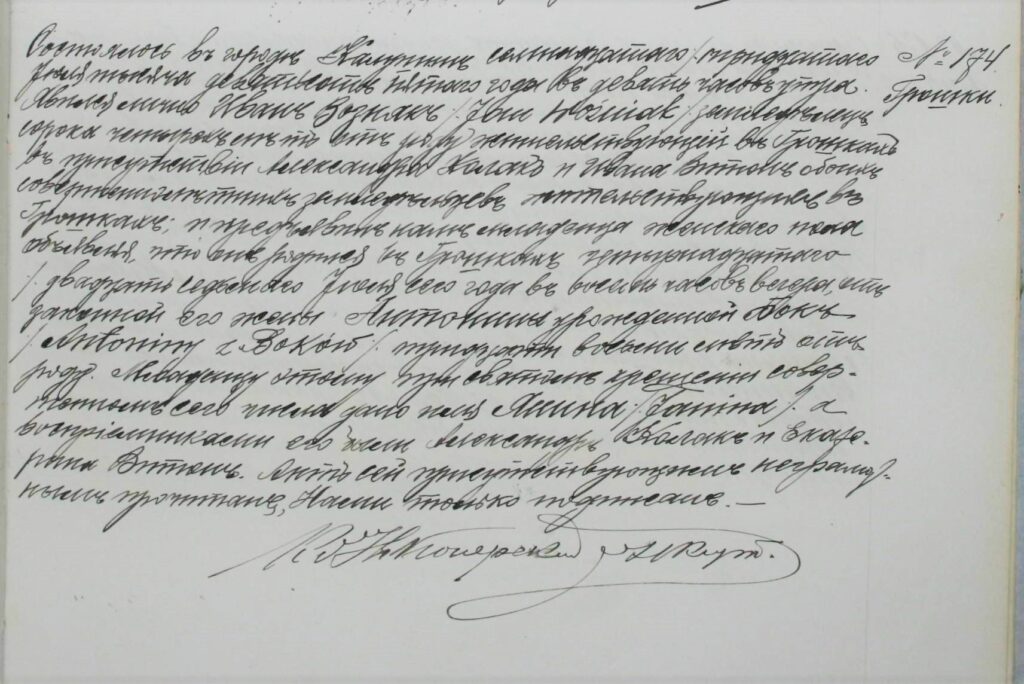 Состоялось въ городѣ Калушинѣ семнадцатаго /тридцатаго/
Іюля тысяча девятьсотъ пятаго года въ девять часовъ утра.
Явился лично Иванъ Возьнякъ /Jan Woźniak/ земледѣлецъ
сорока четырехъ лѣтъ отъ роду жительствующій въ Грошкахъ
въ присутствіи Александра Колакъ и Ивана Витонъ обоихъ
совершеннолѣтнихъ земледѣльцевъ жительствующихъ въ
Грошкахъ; и предъявилъ намъ младенца женскаго пола
объявляя, что онъ родился въ Грошкахъ четырнадцатаго
/двадцать седьмаго Іюля сего года въ восемь часовъ вечера, отъ
законной его жены Антонины урожденной Бокъ
/Antoniny z Boków/. тридцати восьми лѣтъ отъ
роду. Младенцу этому при святомъ крещеніи совер-
шенномъ сего числа дано имя Янина /Janina/. а
воспріемниками его были Александръ Колакъ и Екате-
рина Витонъ. Актъ сей присутствующимъ неграмот-
нымъ прочитанъ, Нами только подписанъ. —
№ 174
Грошки.